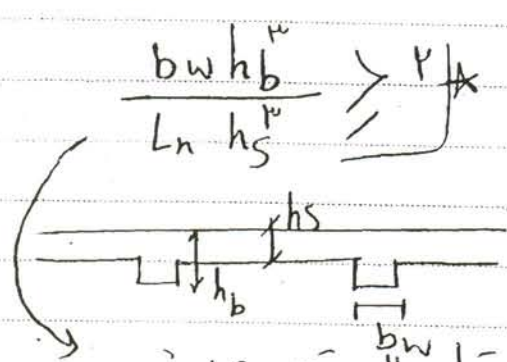 bw hb³
Ln hs³
≥ ۲
hs
hb
bw